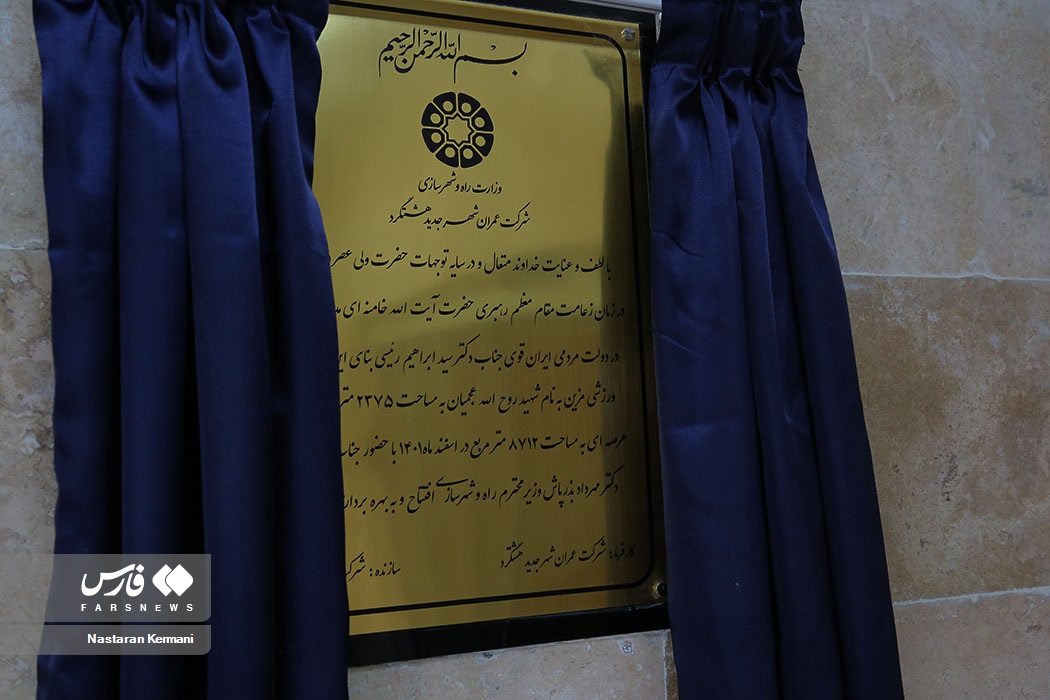 بسم الله الرحمن الرحیم
وزارت راه و شهرسازی
شرکت عمران شهر جدید هشتگرد
با لطف و عنایت خداوند متعال و در سایه توجهات حضرت ولی عصر
در زمان زعامت مقام معظم رهبری حضرت آیت الله خامنه ای
در دولت مردمی ایران قوی جناب دکتر سید ابراهیم رئیسی بنای
ورزشی مزین به نام شهید روح الله عجمیان به مساحت ۲۳۷۵ متر
عرصه ای به مساحت ۸۷۱۲ متر مربع در اسفند ماه ۱۴۰۱ با حضور جناب
دکتر مهرداد بذرپاش وزیر محترم راه و شهرسازی افتتاح و به بهره
کارفرما: شرکت عمران شهر جدید هشتگرد سازنده:
فارس
FARSNEWS
Nastaran Kermani